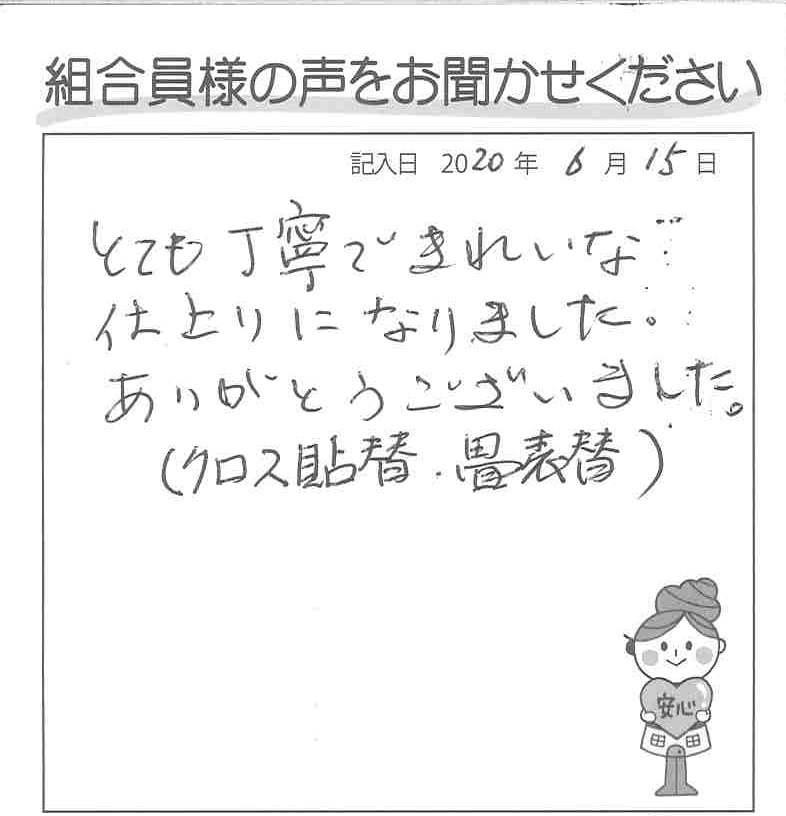 組合員様の声をお聞かせください
記入日 2020年 6月 15日
とても丁寧できれいな
仕上りになりました。
ありがとうございました。
(クロス貼替・畳表替)
安心